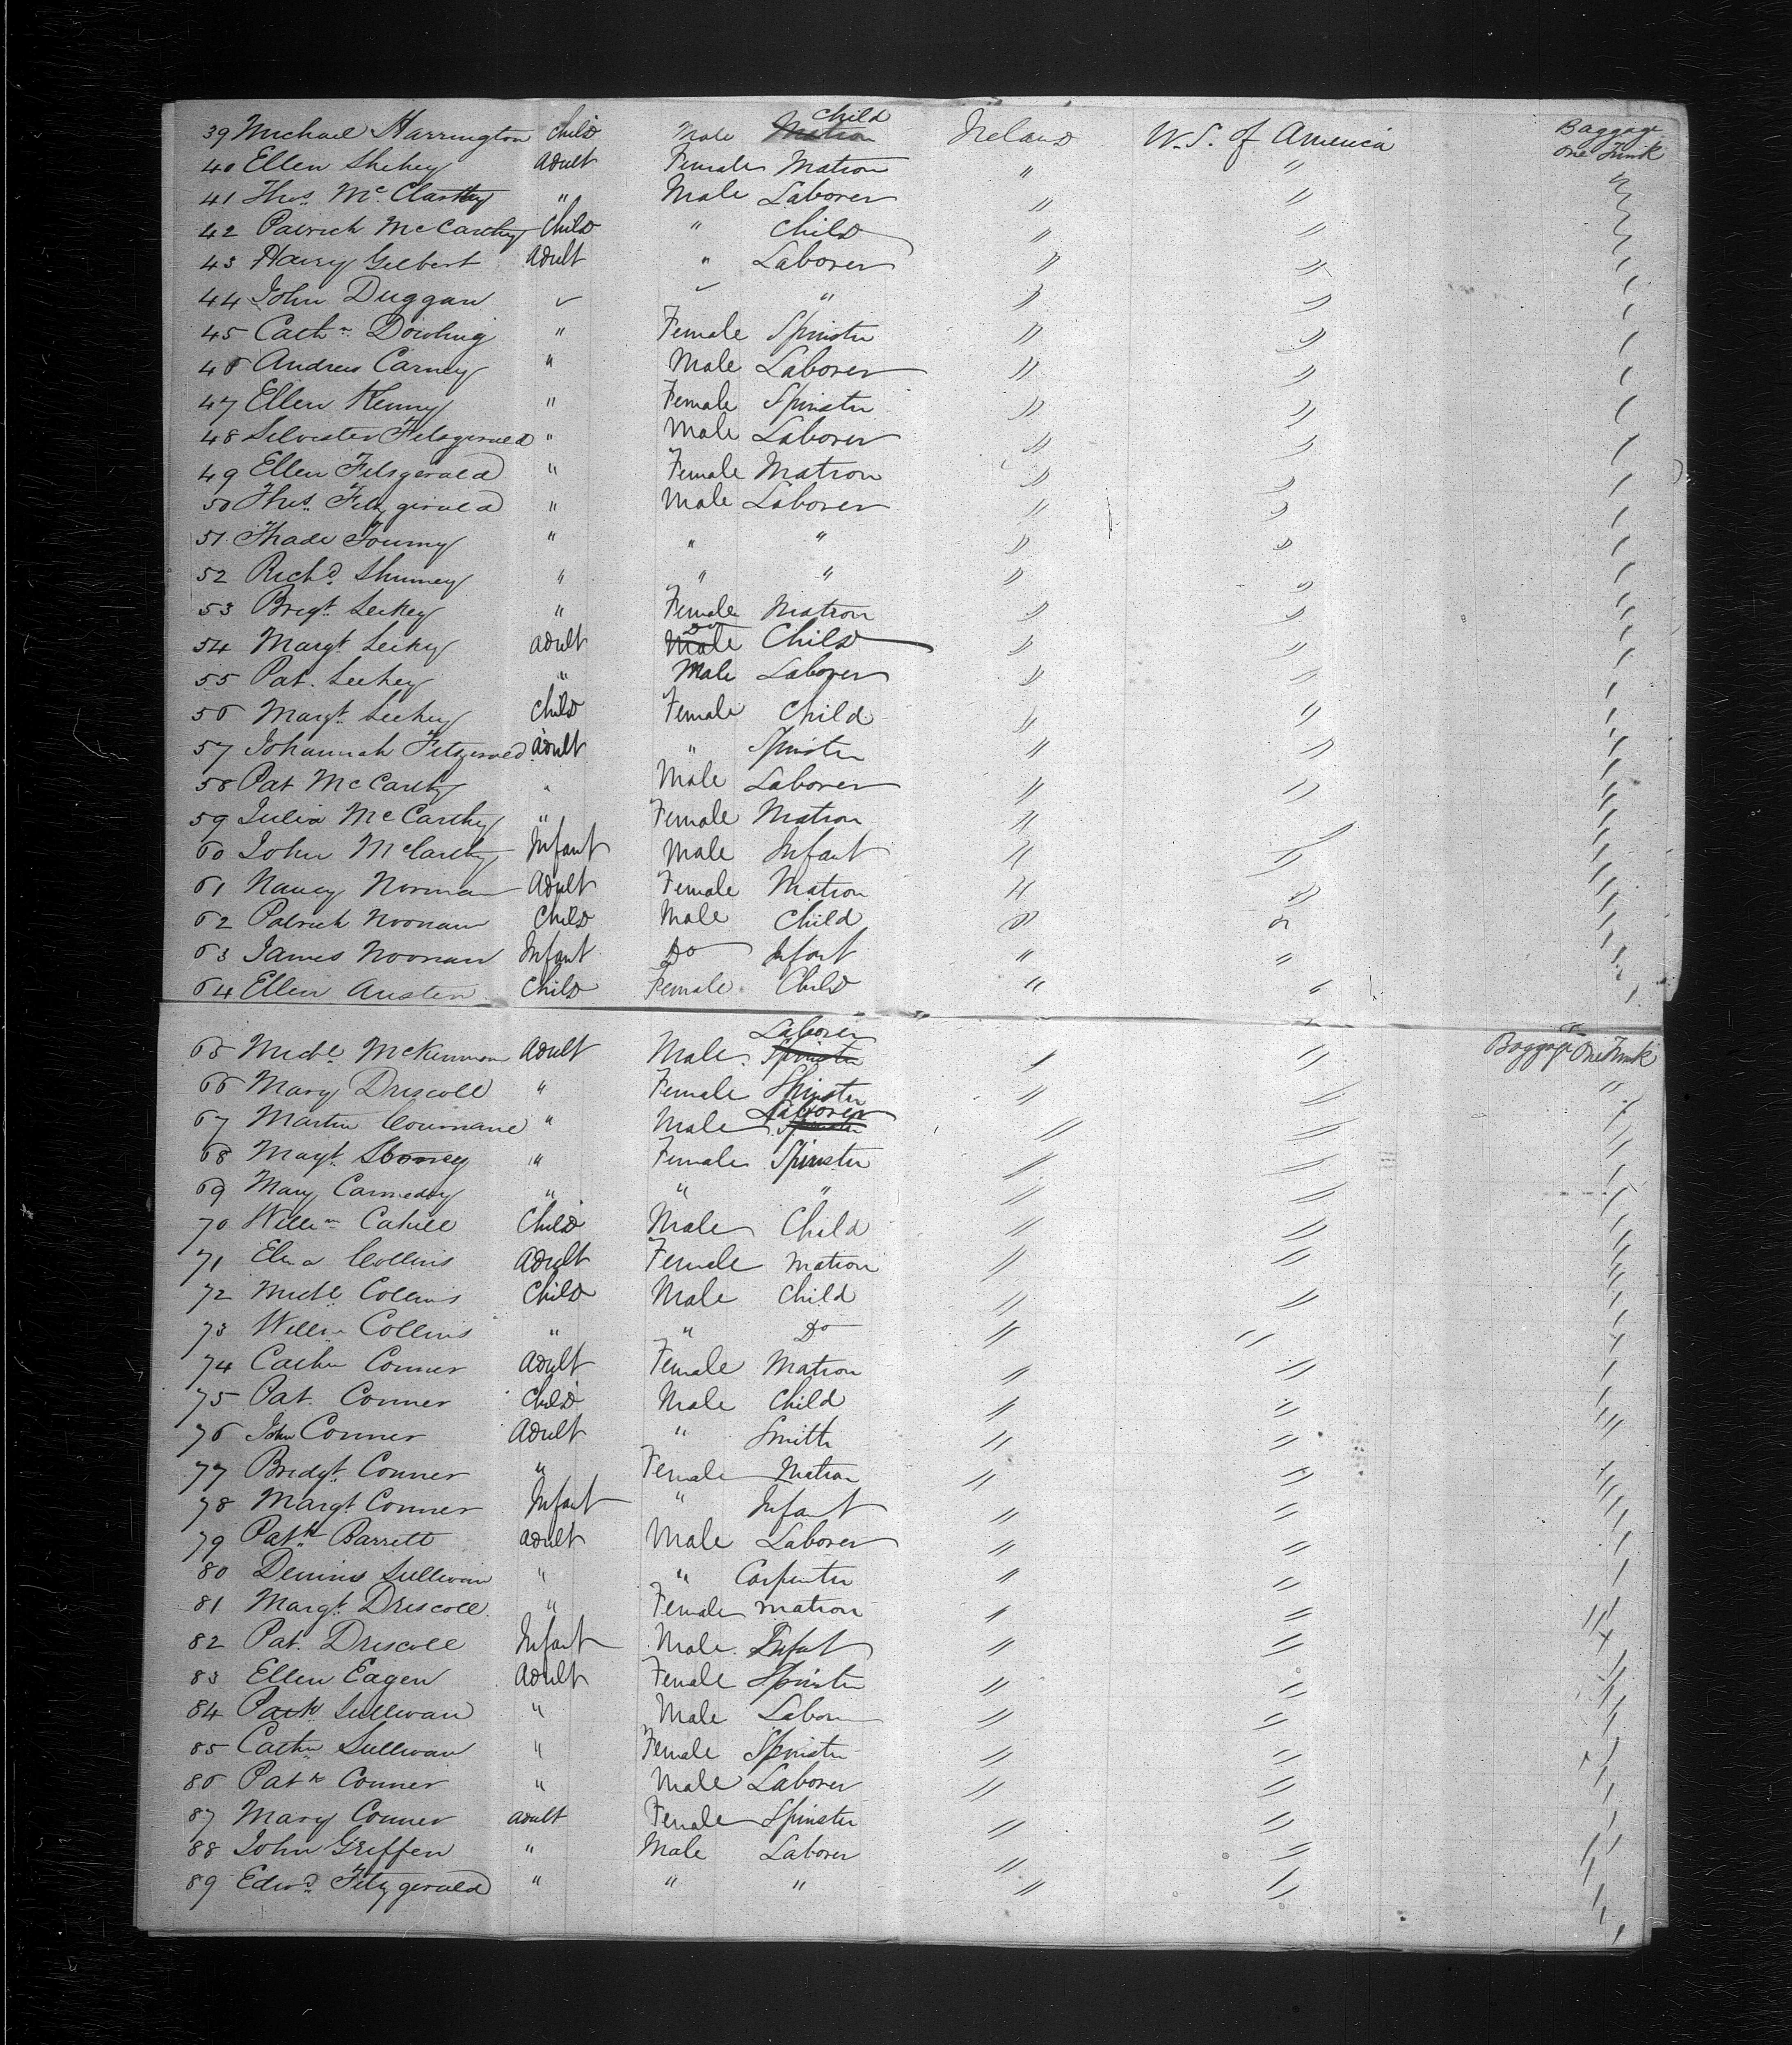 39 Michael Harrington Child Male Matron Child Ireland U.S. of America Baggage One Trunk
40 Ellen Shehey Adult Female Matron " " "
41 Thos. McCarthy " Male Laborer " " "
42 Patrick McCarthy Child " Child " " "
43 Harry Gilbert Adult " Laborer " " "
44 John Duggan " " " " " "
45 Cathn Dowling " Female Spinster " " "
46 Andrew Carney " Male Laborer " " "
47 Ellen Kenny " Female Spinster " " "
48 Silvester Fitzgerald " Male Laborer " " "
49 Ellen Fitzgerald " Female Matron " " "
50 Thos. Fitzgerald " Male Laborer " " "
51 Thade Toumy " " " " " "
52 Richd. " " " " " "
53 Bregt. Leekey " Female Matron " " "
54 Margt. Leeky Adult Male Do Child " " "
55 Pat. Leekey " Male Laborer " " "
56 Margt. Leekey Child Female Child " " "
57 Johannah Fitzgerald Adult " Spinster " " "
58 Pat McCarthy " Male Laborer " " "
59 Julia McCarthy " Female Matron " " "
60 John McCarthy Infant Male Infant " " "
61 Nancy Norman Adult Female Matron " " "
62 Patrick Noonan Child Male Child " " "
63 James Noonan Infant Do Infant " " "
64 Ellen Austen Child Female Child " " "
65 Michl McKinnon Adult Male Spinster Laborer " " Baggage One Trunk
66 Mary Driscoll " Female Spinster " " "
67 Martin Cournane " Male Spinster Laborer " " "
68 Margt. " Female Spinster " " "
69 Mary Carmedy " " " " " "
70 Willm Cahill Child Male Child " " "
71 Collins Adult Female Matron " " "
72 Michl Collins Child Male Child " " "
73 Willm Collins " " Do " " "
74 Cathn Conner Adult Female Matron " " "
75 Pat. Conner Child Male Child " " "
76 John Conner Adult " Smith " " "
77 Bredgt. Conner " Female Matron " " "
78 Margt Conner Infant " Infant " " "
79 Patk Barrett Adult Male Laborer " " "
80 Dennis Sullivan " " Carpenter " " "
81 Margt. Driscoll " Female Matron " " "
82 Pat. Driscoll Infant Male Infant " " "
83 Ellen Eagen Adult Female Spinster " " "
84 Patk Sullivan " Male Labor " " "
85 Cathn Sullivan " Female Spinster " " "
86 Patk Conner " Male Laborer " " "
87 Mary Conner Adult Female Spinster " " "
88 John Griffen " Male Laborer " " "
89 Edwd. Fitzgerald " " " " " "